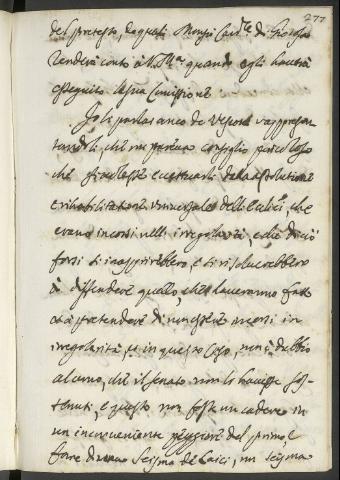 277
del pretesto, da quali Monsr Card.le di Gioiosa
renderà conto à V. M.tà quando egli haverà
esseguito la sua Comissione
Io li parlai anco de Vescovi rappresen
tandoli, che mi pareva consiglio pericoloso
che si facesse l'assoluttione
e rihabilitatione universale delli , che
erano incorsi nelle irregolarità, e che di ciò
forsi si inasprirebbero, e si risolverebbero
à diffendere quello, che haveranno fatto
et à pretendere di non essere incorsi in
irregolarità, et in questo caso, non è dubbio
alcuno, che il senato non li havesse sos-
tenuti, e questo non fosse un cadere in
un inconveniente peggiore del primo, e
forse di uno scisma de laici, un scisma